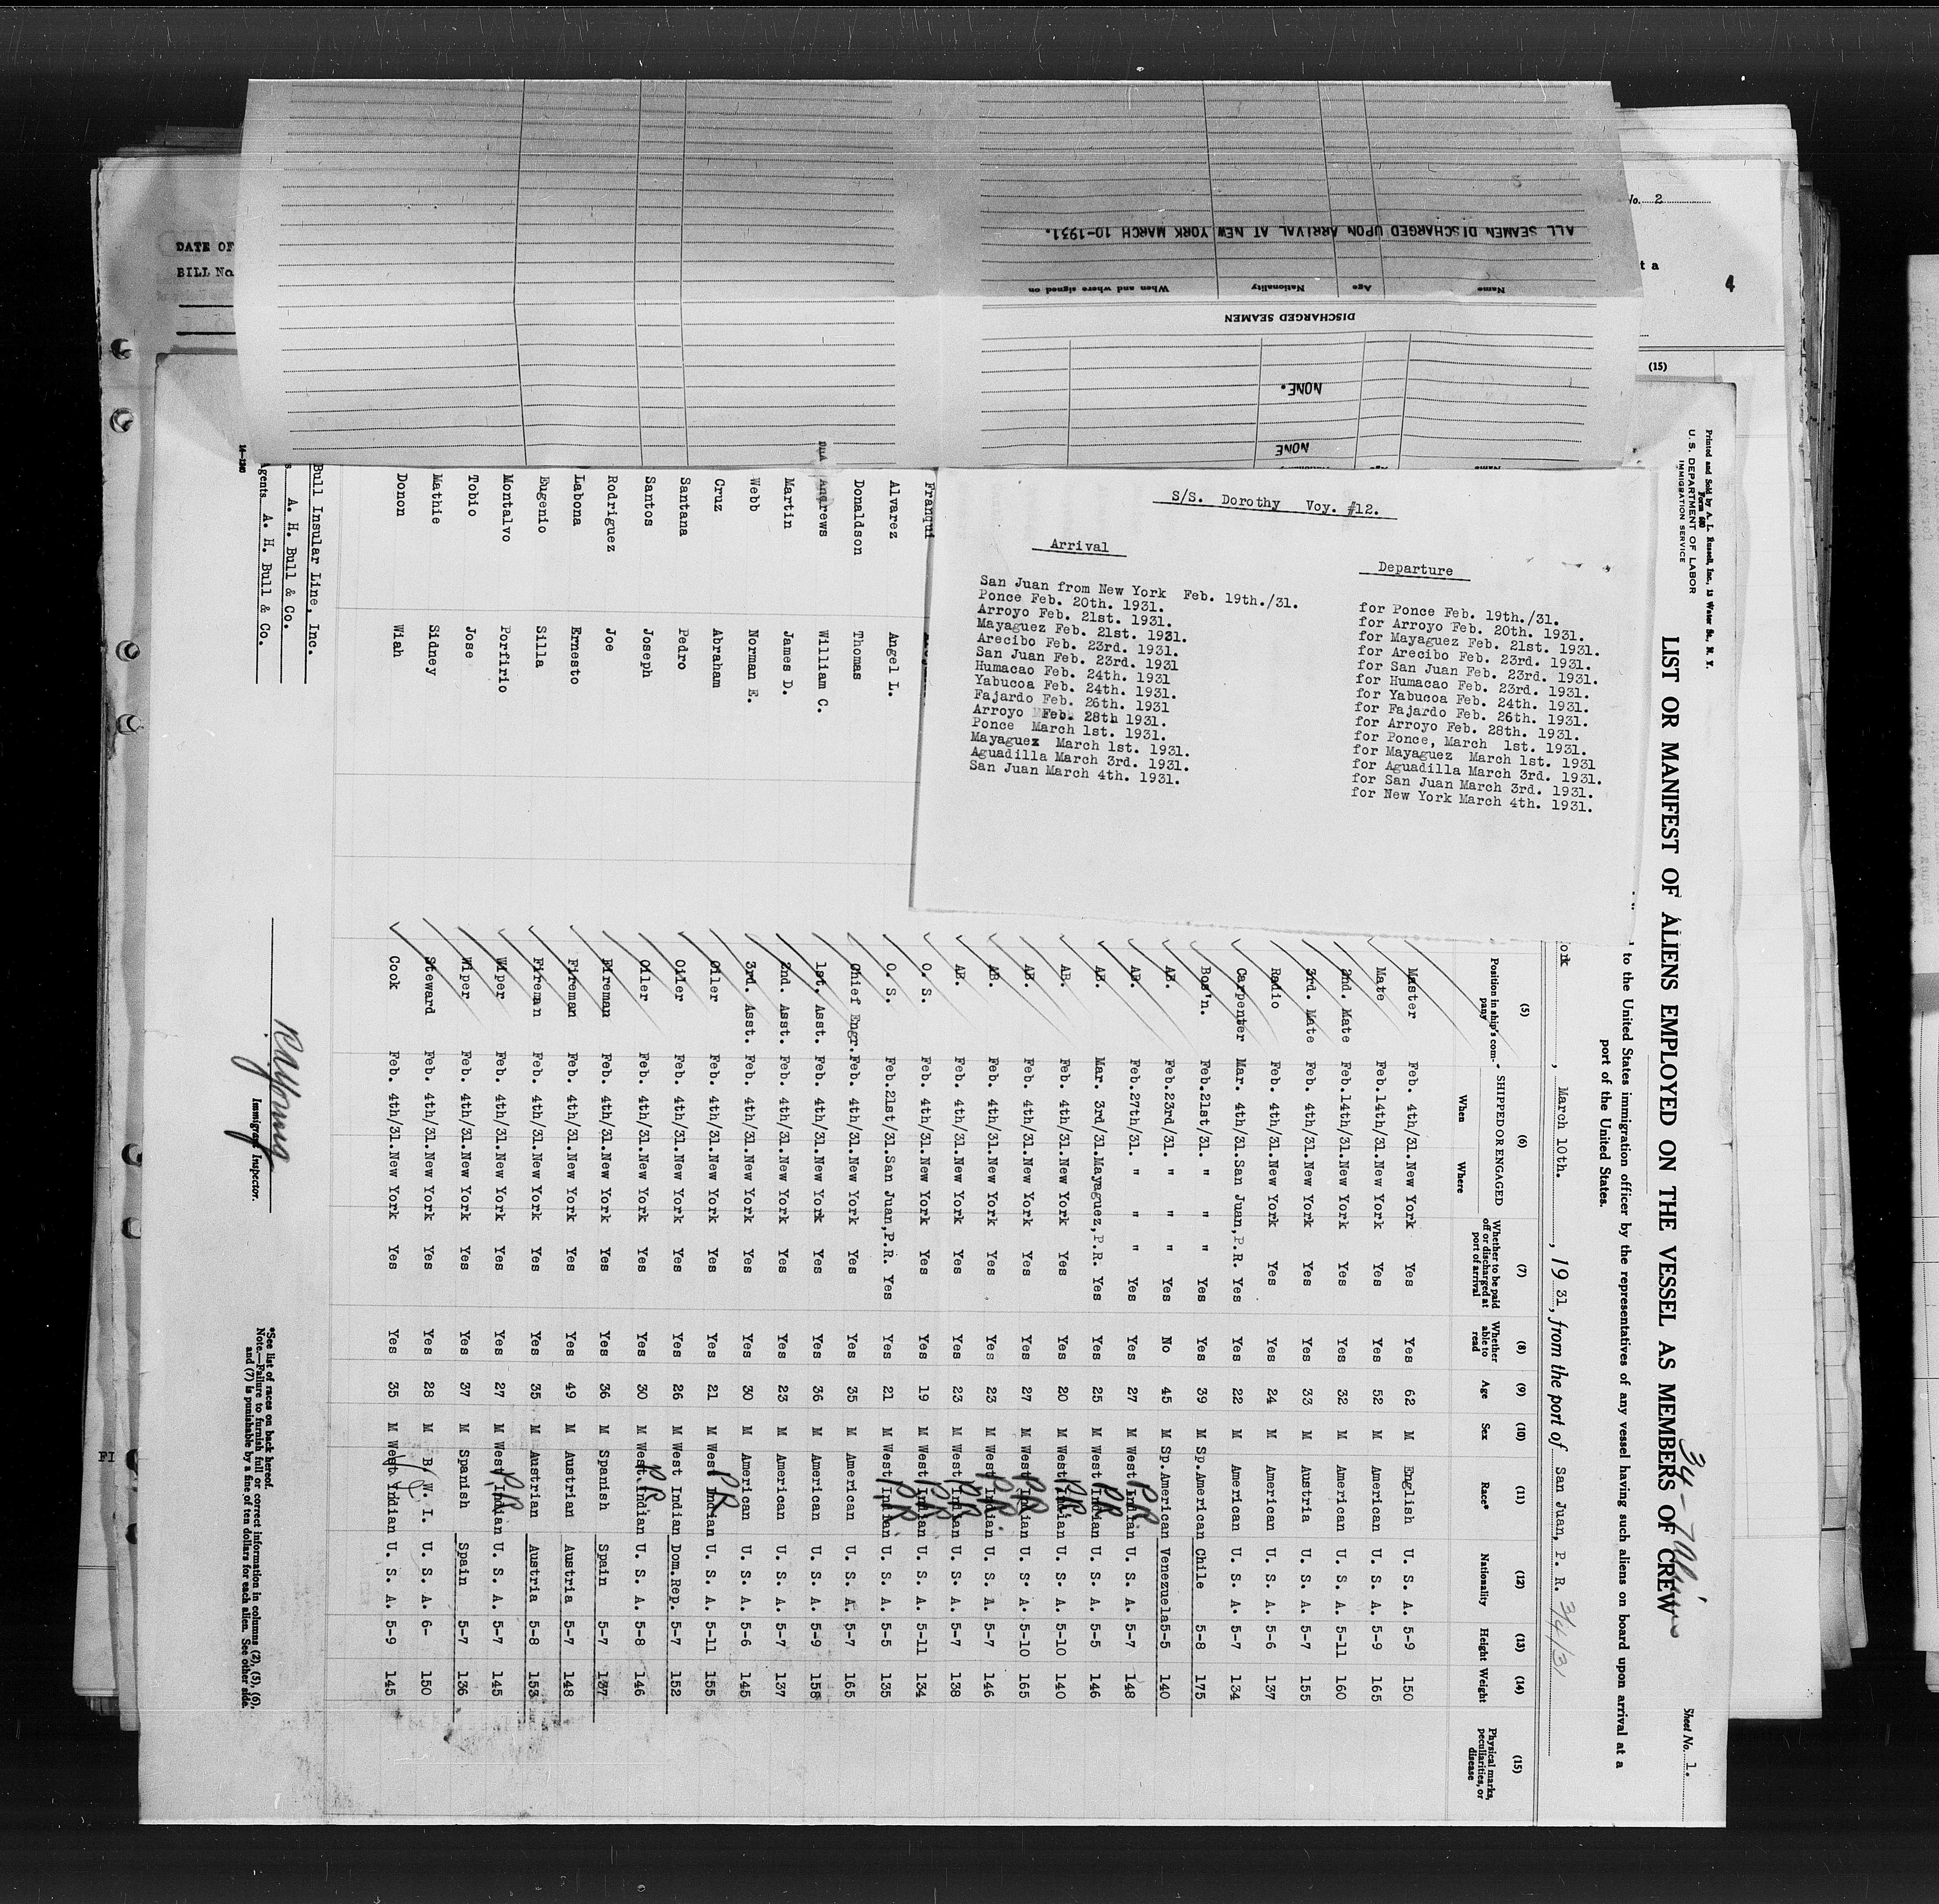 DATE OF
BILL No.
No. 2
t a
4
(15)
ALL SEAMEN DISCHARGED UPON ARRIVAL AT NEW YORK MARCH 10-1931.
Name Age Nationality When and where signed on
DISCHARGED SEAMEN
NONE.
NONE
Name Age
S/S. Dorothy Voy. #12.
Arrival
San Juan from New York Feb. 19th./31.
Ponce Feb. 20th. 1931.
Arroyo Feb. 21st. 1931.
Mayaguez Feb. 21st. 1931.
Arecibo Feb. 23rd. 1931.
San Juan Feb. 23rd. 1931
Humacao Feb. 24th. 1931
Yabucoa Feb. 24th. 1931.
Fajardo Feb. 26th. 1931
Arroyo Feb. 28th 1931.
Ponce March 1st. 1931.
Mayaguez March 1st. 1931.
Aguadilla March 3rd. 1931.
San Juan March 4th. 1931.
Departure
for Ponce Feb. 19th./31.
for Arroyo Feb. 20th. 1931.
for Mayaguez Feb. 21st. 1931.
for Arecibo Feb. 23rd. 1931.
for San Juan Feb. 23rd. 1931.
for Humacao Feb. 23rd. 1931.
for Yabucoa Feb. 24th. 1931.
for Fajardo Feb. 26th. 1931.
for Arroyo Feb. 28th. 1931.
for Ponce, March 1st. 1931.
for Mayaguez March 1st. 1931
for Aguadilla March 3rd. 1931.
for San Juan March 3rd. 1931.
for New York March 4th. 1931.
Printed and Sold by A. L. Russell, Inc., 15 Water St., N. Y.
Form 680
U. S. DEPARTMENT OF LABOR
IMMIGRATION SERVICE
Sheet No. 1.
LIST OR MANIFEST OF ALIENS EMPLOYED ON THE VESSEL AS MEMBERS OF CREW
to the United States immigration officer by the representatives of any vessel having such aliens on board upon arrival at a
port of the United States.
ork, March 10th., 19 31, from the port of San Juan, P. R. 3/4/31
(5) (6) (7) (8) (9) (10) (11) (12) (13) (14) (15)
Position in ship's company SHIPPED OR ENGAGED When Where Whether to be paid off or discharged at port of arrival Whether able to read Age Sex Race* Nationality Height Weight Physical marks, peculiarities, or disease
Master Feb. 4th/31. New York Yes Yes 62 M English U. S. A. 5-9 150
Mate Feb. 14th/31. New York Yes Yes 52 M American U. S. A. 5-9 165
2nd. Mate Feb. 14th/31. New York Yes Yes 32 M American U. S. A. 5-11 160
3rd. Mate Feb. 4th/31. New York Yes Yes 33 M Austria U. S. A. 5-7 155
Radio Feb. 4th/31. New York Yes Yes 24 M American U. S. A. 5-6 137
Carpenter Mar. 4th/31. San Juan, P.R. Yes Yes 22 M American U. S. A. 5-7 134
Bos'n. Feb. 21st/31. " " " Yes Yes 39 M Sp. American Chile 5-8 175
AB. Feb. 23rd/31. " " " Yes No 45 M Sp. American Venezuela 5-5 140
AB. Feb. 27th/31. " " " Yes Yes 27 M West Indian PR U. S. A. 5-7 148
AB. Mar. 3rd/31. Mayaguez, P.R. Yes Yes 25 M West Indian PR U. S. A. 5-5 146
AB. Feb. 4th/31. New York Yes Yes 20 M West Indian PR U. S. A. 5-10 140
AB. Feb. 4th/31. New York Yes Yes 27 M West Indian PR U. S. A. 5-10 165
AB. Feb. 4th/31. New York Yes Yes 23 M West Indian PR U. S. A. 5-7 146
AB. Feb. 4th/31. New York Yes Yes 23 M West Indian PR U. S. A. 5-7 138
Franqui O. S. Feb. 4th/31. New York Yes Yes 19 M West Indian PR U. S. A. 5-11 134
Alvarez Angel L. O. S. Feb. 21st/31. San Juan, P.R. Yes Yes 21 M West Indian PR U. S. A. 5-5 135
Donaldson Thomas Chief Engr. Feb. 4th/31. New York Yes Yes 35 M American U. S. A. 5-7 165
Andrews William C. 1st. Asst. Feb. 4th/31. New York Yes Yes 36 M American U. S. A. 5-9 158
Martin James D. 2nd. Asst. Feb. 4th/31. New York Yes Yes 23 M American U. S. A. 5-7 137
Webb Norman E. 3rd. Asst. Feb. 4th/31. New York Yes Yes 30 M American U. S. A. 5-6 145
Cruz Abraham Oiler Feb. 4th/31. New York Yes Yes 21 M West Indian PR U. S. A. 5-11 155
Santana Pedro Oiler Feb. 4th/31. New York Yes Yes 26 M West Indian Dom. Rep. 5-7 152
Santos Joseph Oiler Feb. 4th/31. New York Yes Yes 30 M West Indian PR U. S. A. 5-8 146
Rodriguez Joe Fireman Feb. 4th/31. New York Yes Yes 36 M Spanish Spain 5-7 137
Labona Ernesto Fireman Feb. 4th/31. New York Yes Yes 49 M Austrian Austria 5-7 148
Eugenio Silla Fireman Feb. 4th/31. New York Yes Yes 35 M Austrian Austria 5-8 153
Montalvo Porfirio Wiper Feb. 4th/31. New York Yes Yes 27 M West Indian PR U. S. A. 5-7 145
Tobio Jose Wiper Feb. 4th/31. New York Yes Yes 37 M Spanish Spain 5-7 136
Mathie Sidney Steward Feb. 4th/31. New York Yes Yes 28 M B. W. I. U. S. A. 6- 150
Donon Wiah Cook Feb. 4th/31. New York Yes Yes 35 M West Indian U. S. A. 5-9 145
Bull Insular Line, Inc.
s. A. H. Bull & Co.
Agents A. H. Bull & Co.
14-1240
Immigrant Inspector.
*See list of races on back hereof.
Note.—Failure to furnish full or correct information in columns (2), (5), (6),
and (7) is punishable by a fine of ten dollars for each alien. See other side.